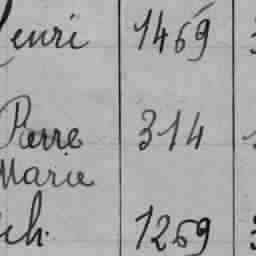 Henri 1469
Pierre 314
Marie
ch. 1269